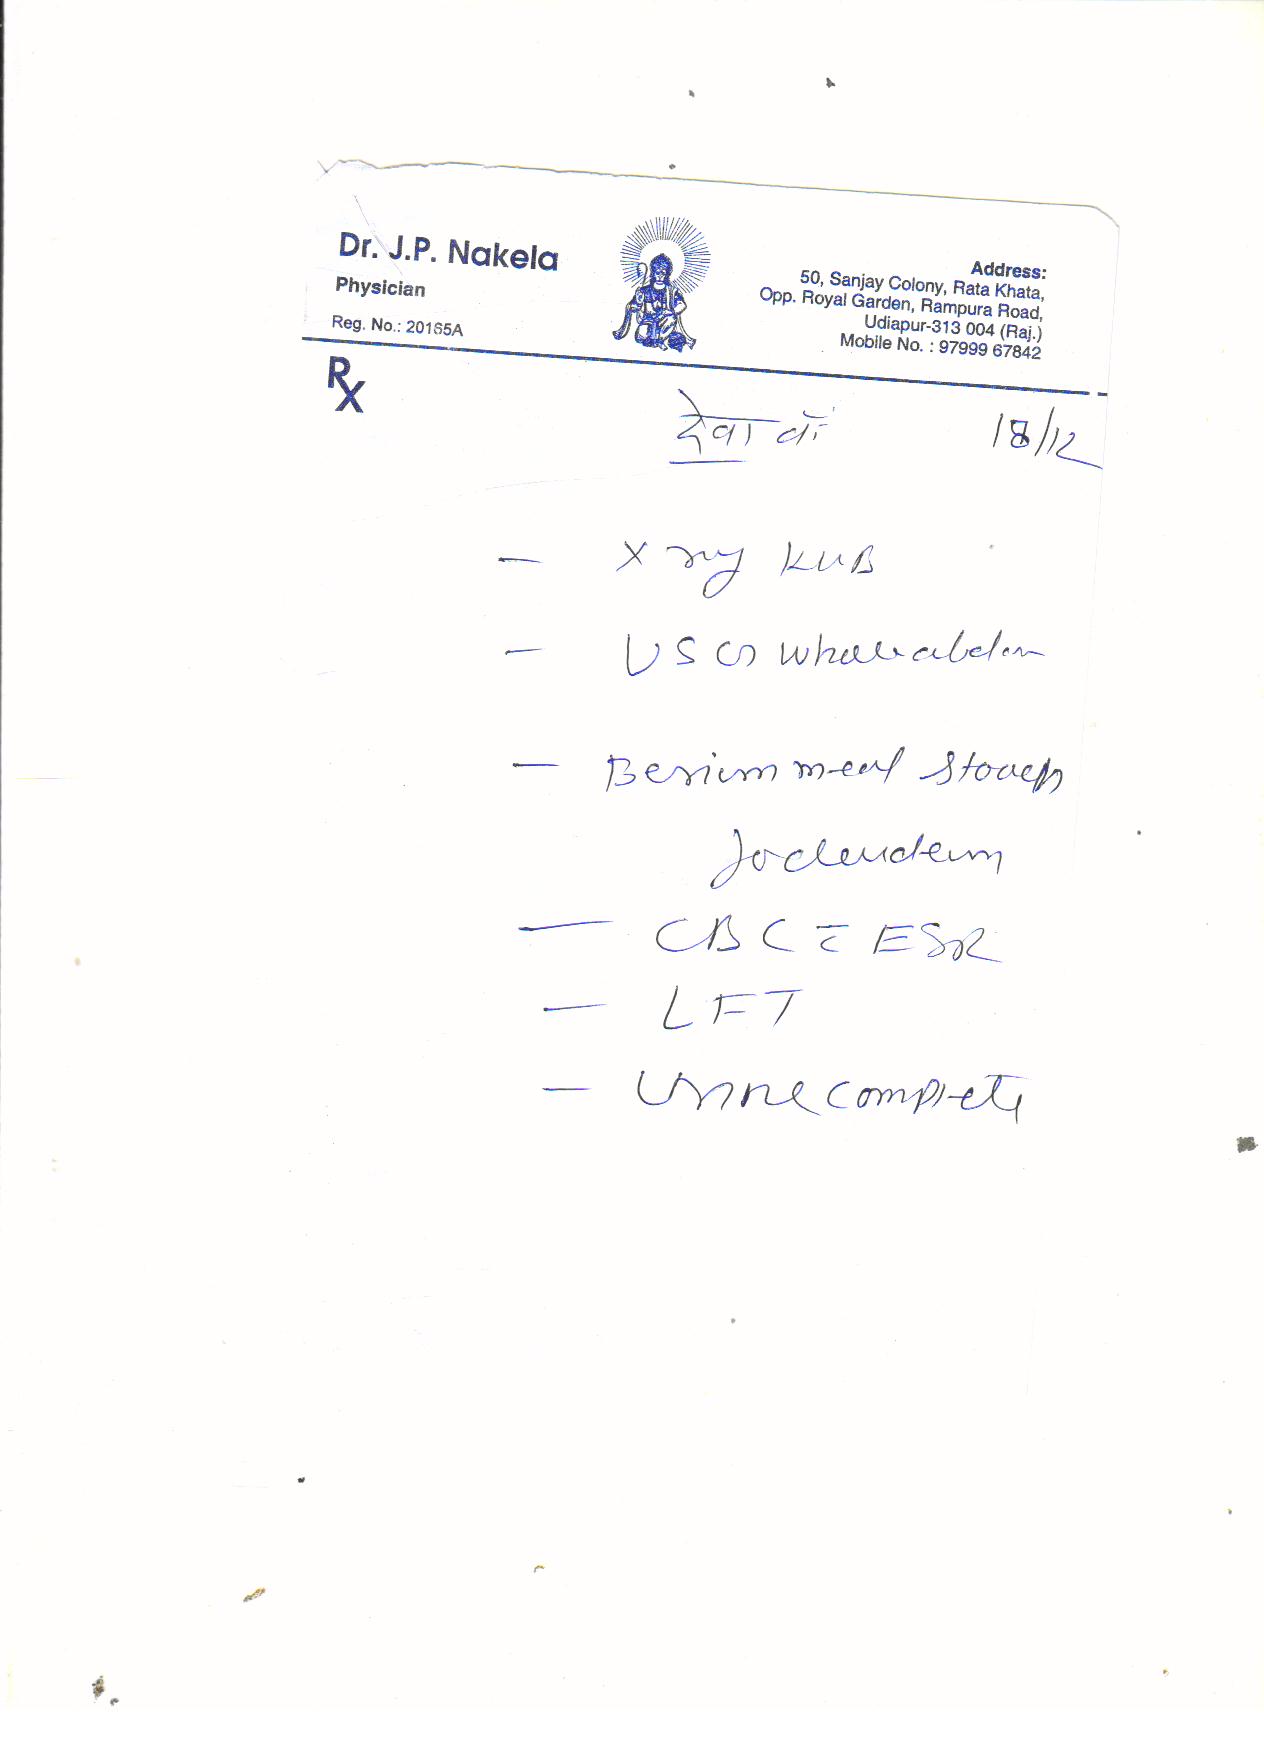 Dr. J.P. Nakela
Physician
Reg. No.: 20165A
Address:
50, Sanjay Colony, Rata Khata,
Opp. Royal Garden, Rampura Road,
Udiapur-313 004 (Raj.)
Mobile No. : 97999 67842
Rx
देवा 18/12
- X ray KUB
- USG whole abdom
- Berium meal stomach
for duodenum
- CBC c̄ ESR
- LFT
- Urine complete